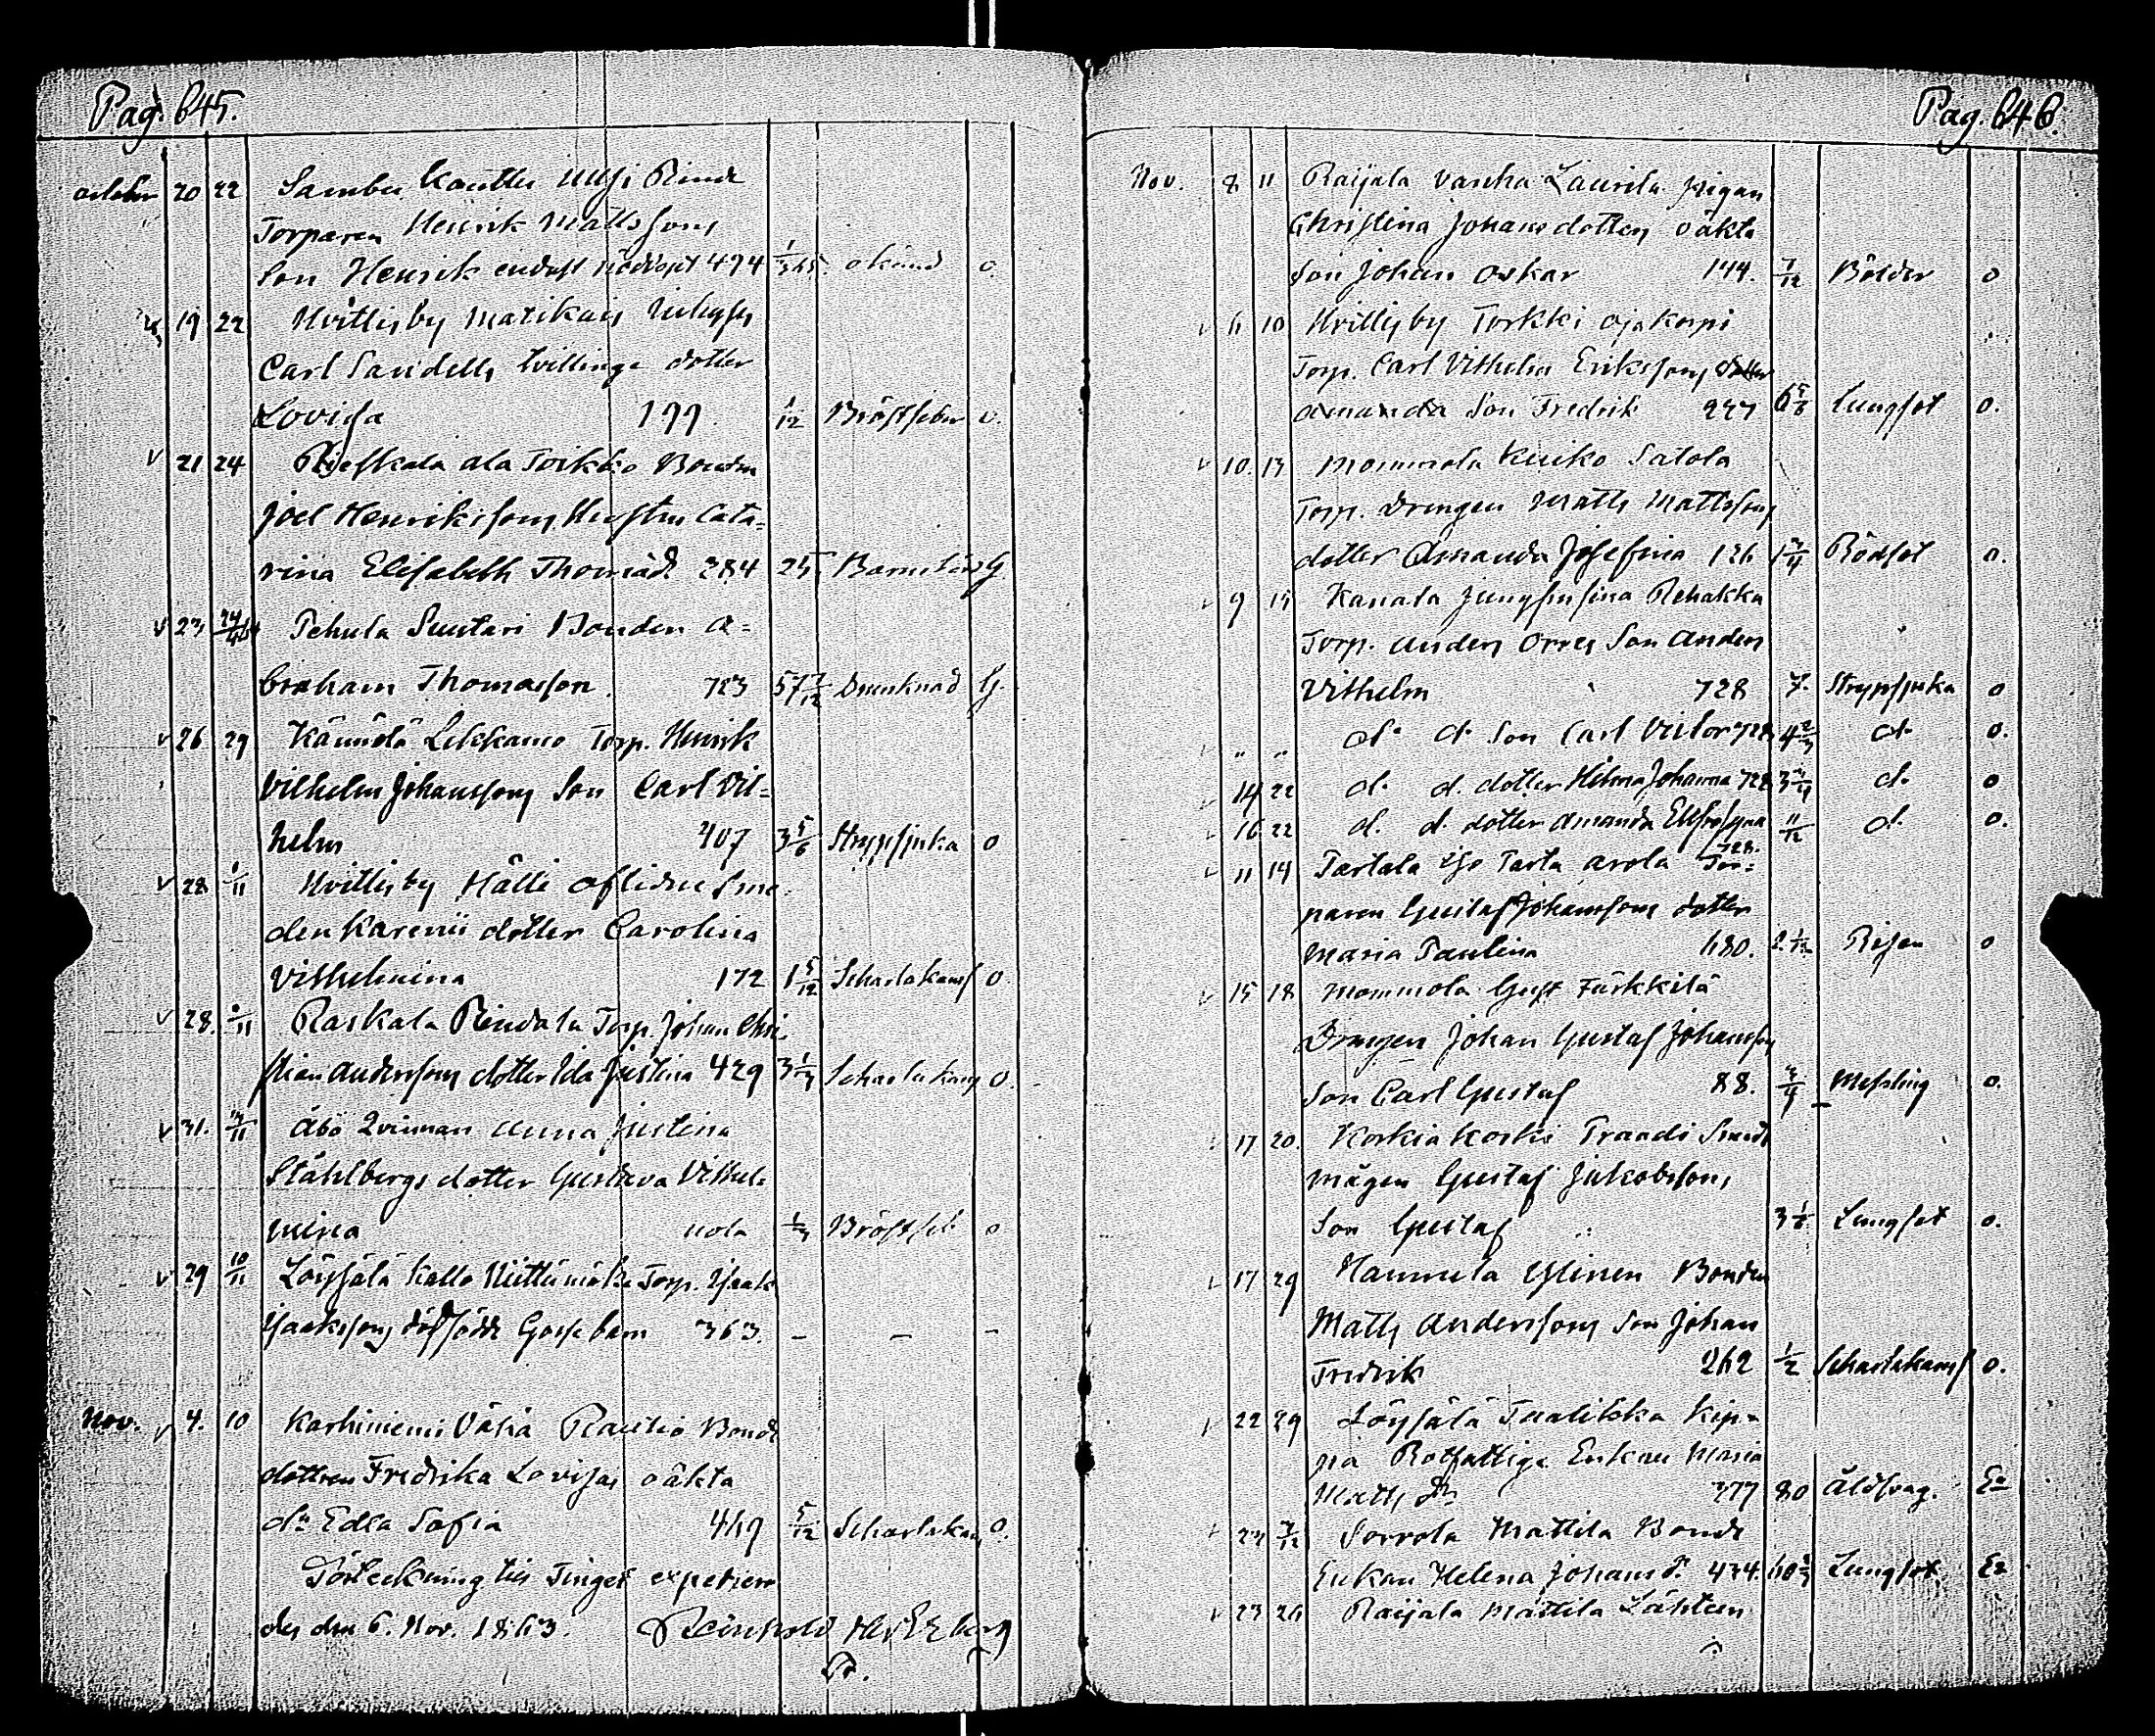 Pag. 645.
October 20 22 Sambu Kauttu Uusi Rinne
Torparen Henrik Mattssons
Son Henrik endast nöddöpt 494 1/365 okänd o.
19 22 Hvittisby Marikais
Carl Sandells tvillinge dotter
Lovisa 199 1/12 Bröstfeber o.
v 21 24 Pjeskala ala Torkko Bonden
Joel Henrikssons Hustru Cata=
rina Elisabeth Thomasd 284 25 Barnsäng G
v 23 Pehula Suutari Bonden A=
braham Thomasson 723 57 7/12 Drunknad G.
v 26 29 Kännölä Lekkamo Torp. Henrik
Vilhelm Johanssons Son Carl Vil=
helm 407 3 5/6 Strypsjuka o
v 28 1/11 Hvittisby Hälli aflidne Sme
den Karenii dotter Carolina
Vilhelmina 172 1 5/12 Scharlakansf o
v 28. /11 Raskala Rindala Torp. Johan Chri
stian Anderssons dotter Ida Justina 429 3 1/3 Scharlakansf o.
v 31. /11 Åbo Qvinnan Anna Justina
Ståhlbergs dotter Gustava Vilhel
mina nola 1/3 Bröstfeb o
v 29 10/11 Löysälä Kallo Niittumäki Torp. Isaak
Isakssons dödfödde Gossebarn 363. – – –
Nov. v 4. 10 Karhiniemi Vähä Rautio Bonde
dottren Fredrika Lovisas oäkta
dr. Edla Sofia 469 5/12 Scharlakan o.
Förteckning till Tinget expedierades
den 6. Nov. 1863. Reinhold Hertzberg
Pag. 646.
Nov. 8 11 Raijala Vanha Laurila pigan
Christina Johansdotters oäkta
Son Johan Oskar 144. 7/12 Bölder o
v 6 10 Hvittisby Torkki Ojakorpi
Torp. Carl Vilhelm Erikssons dotter
Amanda Son Fredrik 227 6 5/6 Lungsot o.
v 10. 13 Mommola Kuiko Satola
Torp. Drengen Matts Mattssons
dotter Amanda Josefina 126 1 3/4 Rödsot o.
v 9 15 Kanala Junnfrusina Rehakka
Torp. Anders Orres Son Anders
Vilhelm 728 7. Strypsjuka o
" " d. d. Son Carl Victor 728 4 2/3 d. o.
v 14 22 d. d. dotter Hilma Johanna 728 3 3/4 d. o
v 16 22 d. d. dotter Amanda Eufrosyna 728. 11/12 d. o.
v 11 14 Tartala Iso Tarta Arola Tor=
paren Gustaf Johanssons dotter
Maria Paulina 680. 2 1/12 Risen o
v 15 18 Mommola Gust Turkkilä
Drengen Johan Gustaf Johansson
Son Carl Gustaf 88. 3/4 Messling o.
17 20. Korkiakoski Prandi Smeds
mågen Gustaf Jakobssons
Son Gustaf 3 1/2 Lungsot o.
v 17 29 Hannula Ylinen Bonden
Matts Anderssons Son Johan
Fredrik 262 1/2 Scharlakansf o.
v 22 29 Löysälä Tuulikka Kip=
pa Rotfattige Enkan Maria
Matts Dr 377 80 Ålderdomssvag. En
v 23 7/12 Sorrola Mattila Bonde
Enkan Helena Johansd. 434. 60 2/3 Lungsot. En
v 23 26 Raijala Mattila Lähteen